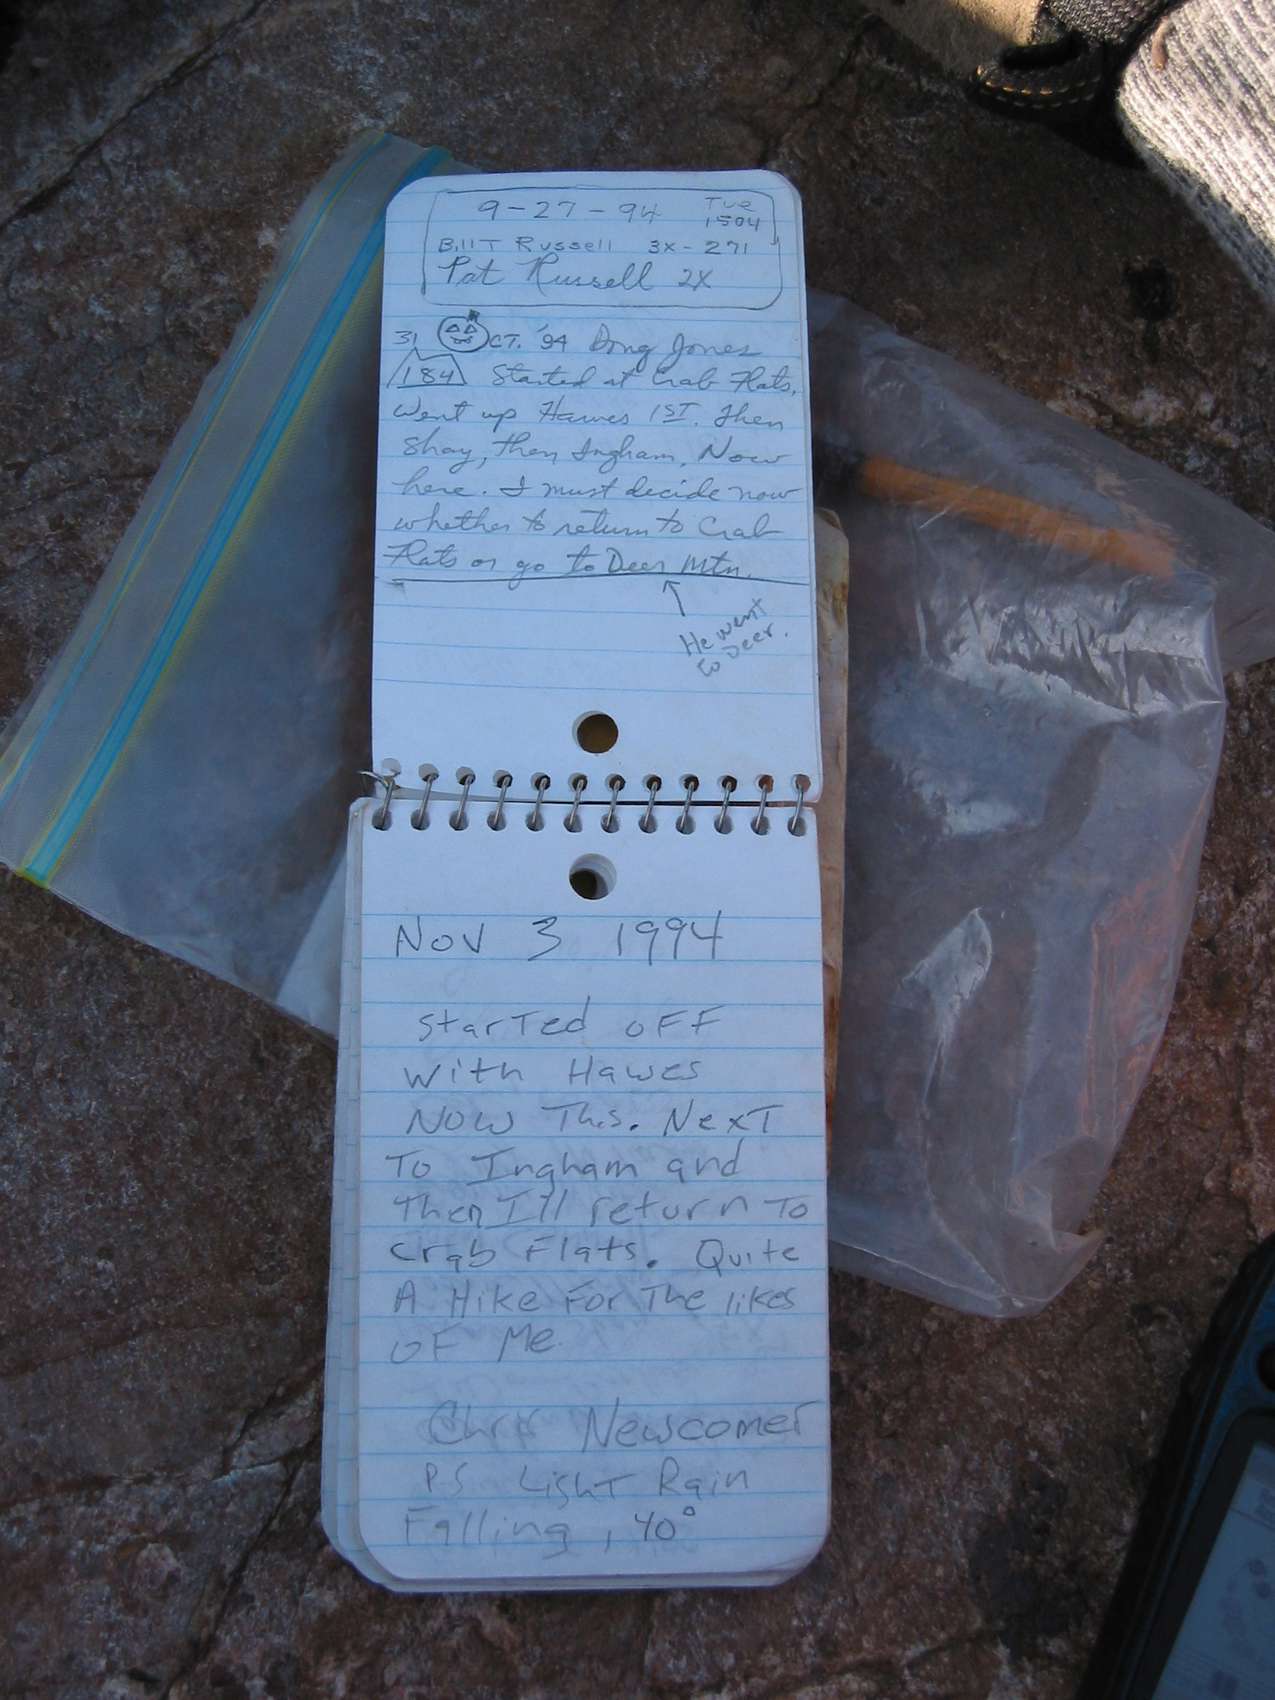 9-27-94 Tue
1504
Bill T Russell 3x-271
Pat Russell 2X
31 OCT. '94 Doug Jones
184 Started at Crab Flats,
went up Hawes 1ST. Then
Shay, then Ingham. Now
here. I must decide now
whether to return to Crab
Flats or go to Deer Mtn.
He went
to Deer.
Nov 3 1994
Started OFF
with Hawes
NOW This. Next
To Ingham and
Then I'll return To
Crab Flats. Quite
A Hike For The likes
OF Me.
Chris Newcomer
PS Light Rain
Falling, 40°